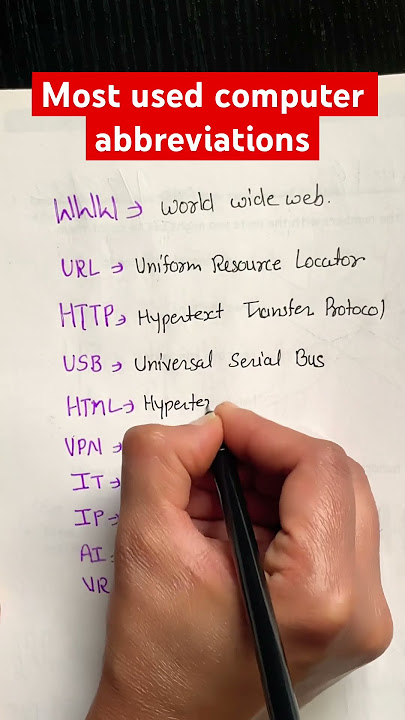 Most used computer
abbreviations
WWW → world wide web.
URL → Uniform Resource Locator
HTTP → Hypertext Transfer Protocol
USB → Universal Serial Bus
HTML → Hyperte
VPN →
IT →
IP →
AI
VR